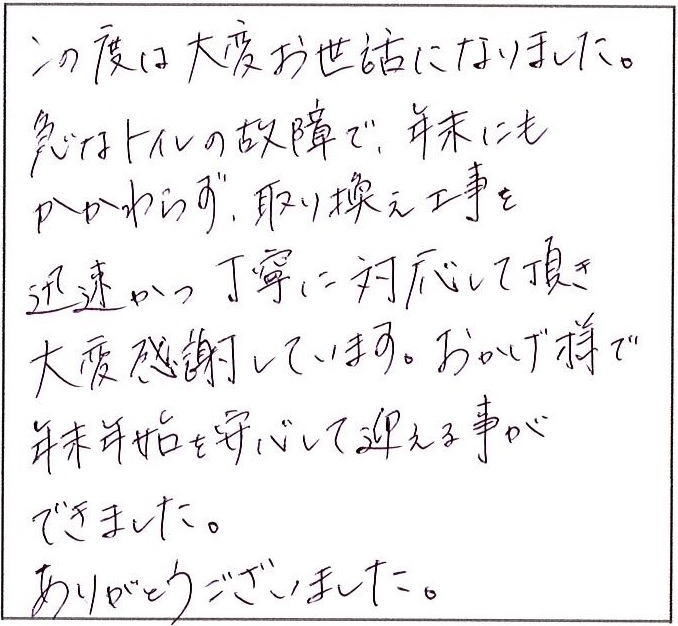 この度は大変お世話になりました。
急なトイレの故障で、年末にも
かかわらず、取り換え工事を
迅速かつ丁寧に対応して頂き
大変感謝しています。おかげ様で
年末年始を安心して迎える事が
できました。
ありがとうございました。